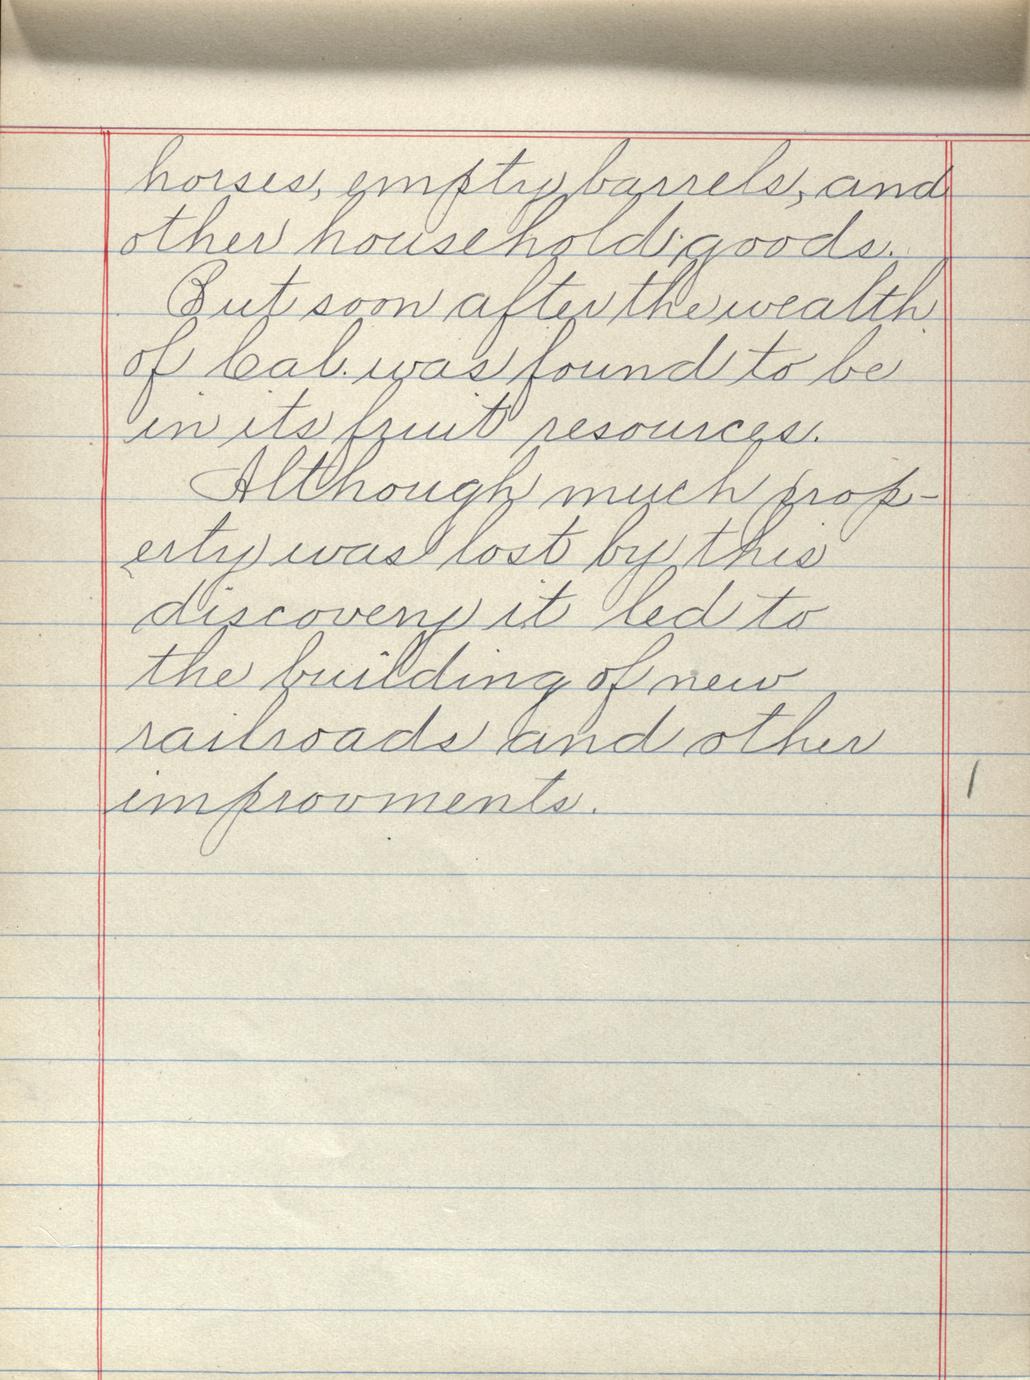 horses, empty barrels, and
other household goods.
But soon after the wealth
of Cal. was found to be
in its fruit resources.
Although much prop-
erty was lost by this
discovery it led to
the building of new
railroads and other
improvments.